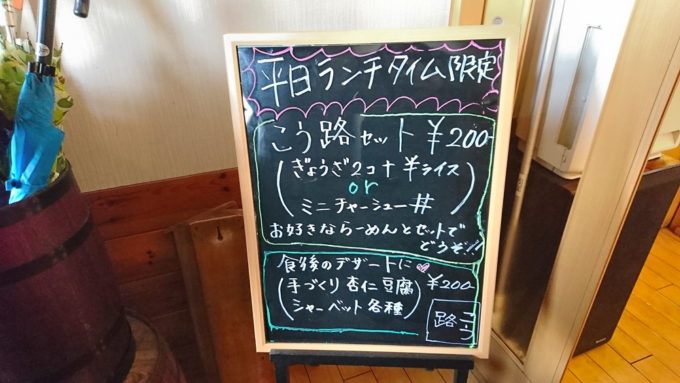 平日ランチタイム限定
こう路セット ¥200-
(ぎょうざ2コ+半ライス
or
ミニチャーシュー丼)
お好きならーめんとセットで
どうぞ!!
食後のデザートに♡
(手づくり杏仁豆腐) ¥200-
(シャーベット各種)
こう
路